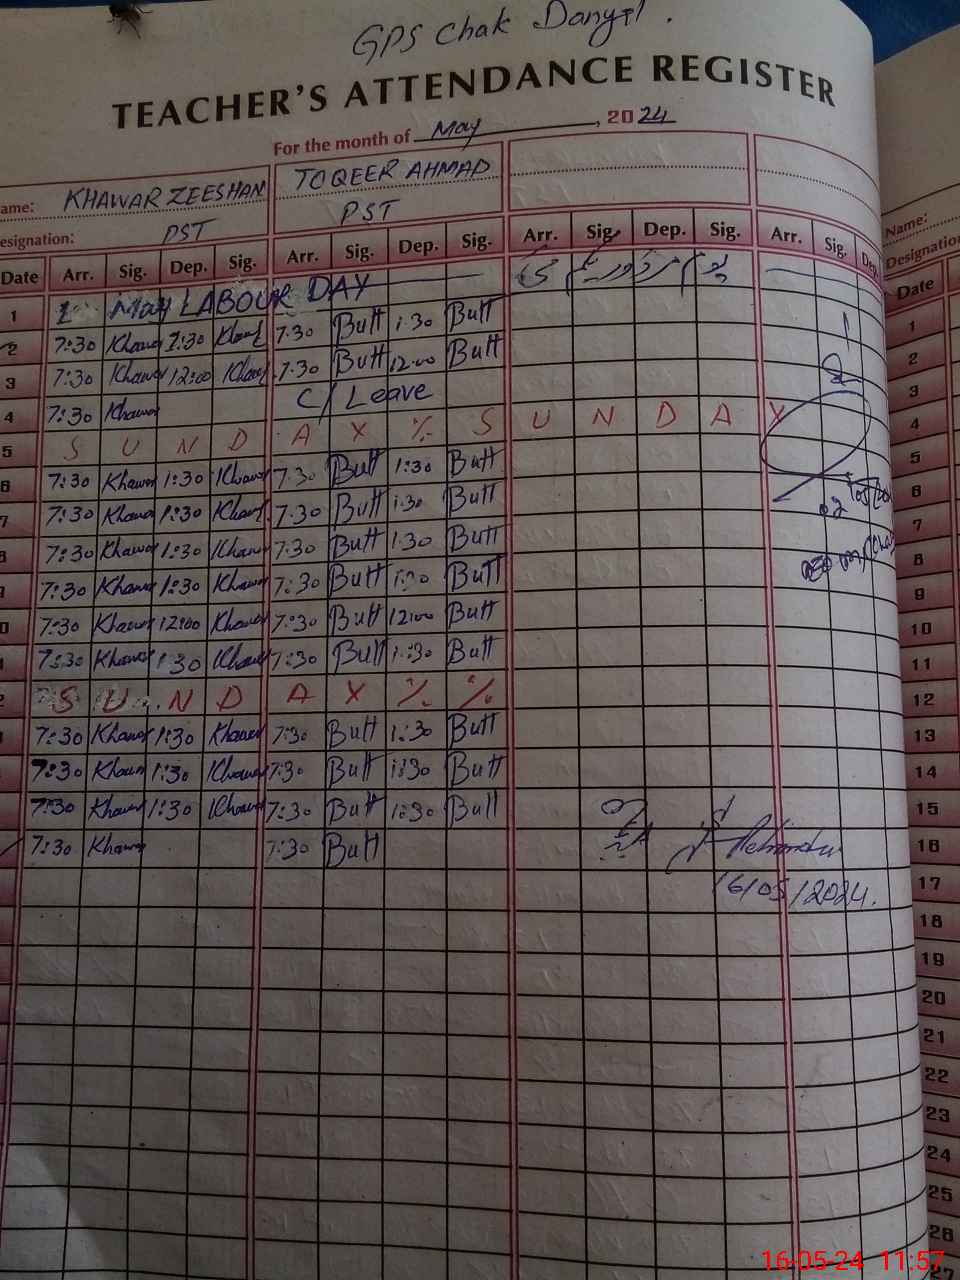 GPS Chak Danyil.
TEACHER'S ATTENDANCE REGISTER
For the month of May, 2024
ame: KHAWAR ZEESHAN TOQEER AHMAD
esignation: PST PST
Name:
Designation
Date Arr. Sig. Dep. Sig. Arr. Sig. Dep. Sig. Arr. Sig. Dep. Sig. Arr. Sig. Dep. Date
1 1 May LABOUR DAY 1
2 7:30 Khawar 1:30 Khawar 7:30 Butt 1:30 Butt 2
3 7:30 Khawar 12:00 Khawar 7:30 Butt 12:00 Butt 3
4 7:30 Khawar C/Leave 4
5 S U N D A Y % S U N D A Y 5
6 7:30 Khawar 1:30 Khawar 7:30 Butt 1:30 Butt 6
7 7:30 Khawar 1:30 Khawar 7:30 Butt 1:30 Butt 7
8 7:30 Khawar 1:30 Khawar 7:30 Butt 1:30 Butt 8
7:30 Khawar 1:30 Khawar 7:30 Butt 1:30 Butt 9
0 7:30 Khawar 12:00 Khawar 7:30 Butt 12:00 Butt 10
7:30 Khawar 1:30 Khawar 7:30 Butt 1:30 Butt 11
S U N D A Y % % 12
7:30 Khawar 1:30 Khawar 7:30 Butt 1:30 Butt 13
7:30 Khawar 1:30 Khawar 7:30 Butt 1:30 Butt 14
7:30 Khawar 1:30 Khawar 7:30 Butt 1:30 Butt 15
7:30 Khawar 7:30 Butt 16
16/05/2024. 17
18
19
20
21
22
23
24
25
26
27
16-05-24 11:57